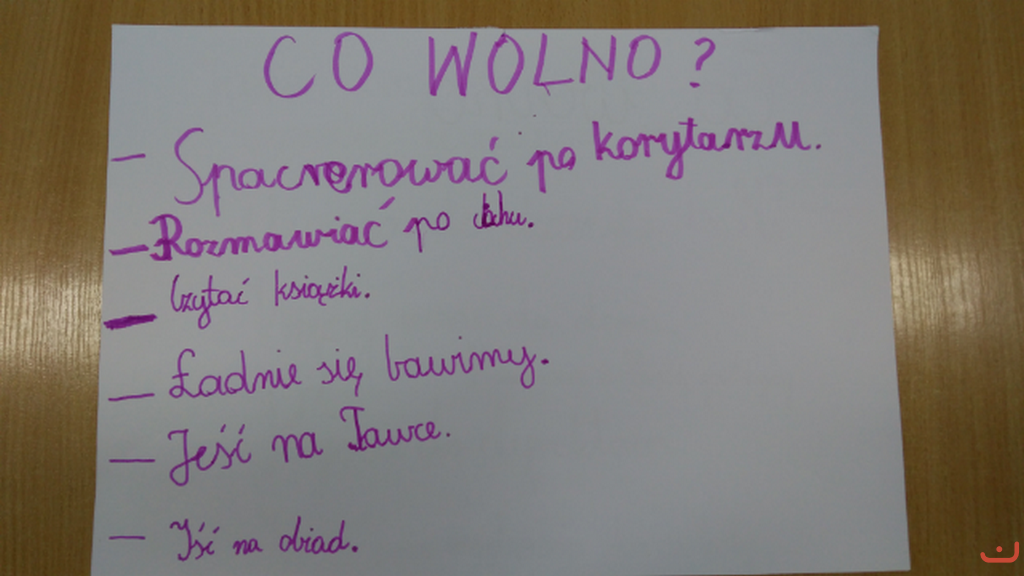 CO WOLNO?
– Spacrerować po korytarzu.
– Rozmawiać po cichu.
– Czytać książki.
– Ładnie się bawimy.
– Jeść na ławce.
– Iść na obiad.